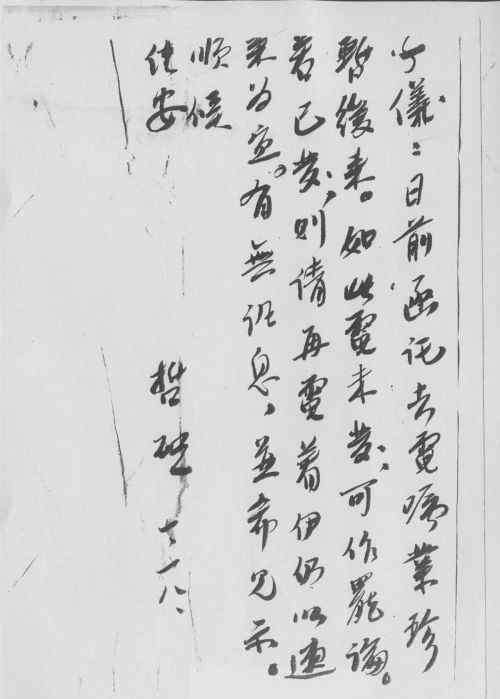 少儀：日前函託去電囑業珍
暫緩來。如此電未發，可作罷論。
若已發，則請再電着伊仍以速
來為宜。有無訊息，並希見示。
順候
佳安
哲 七、十八、